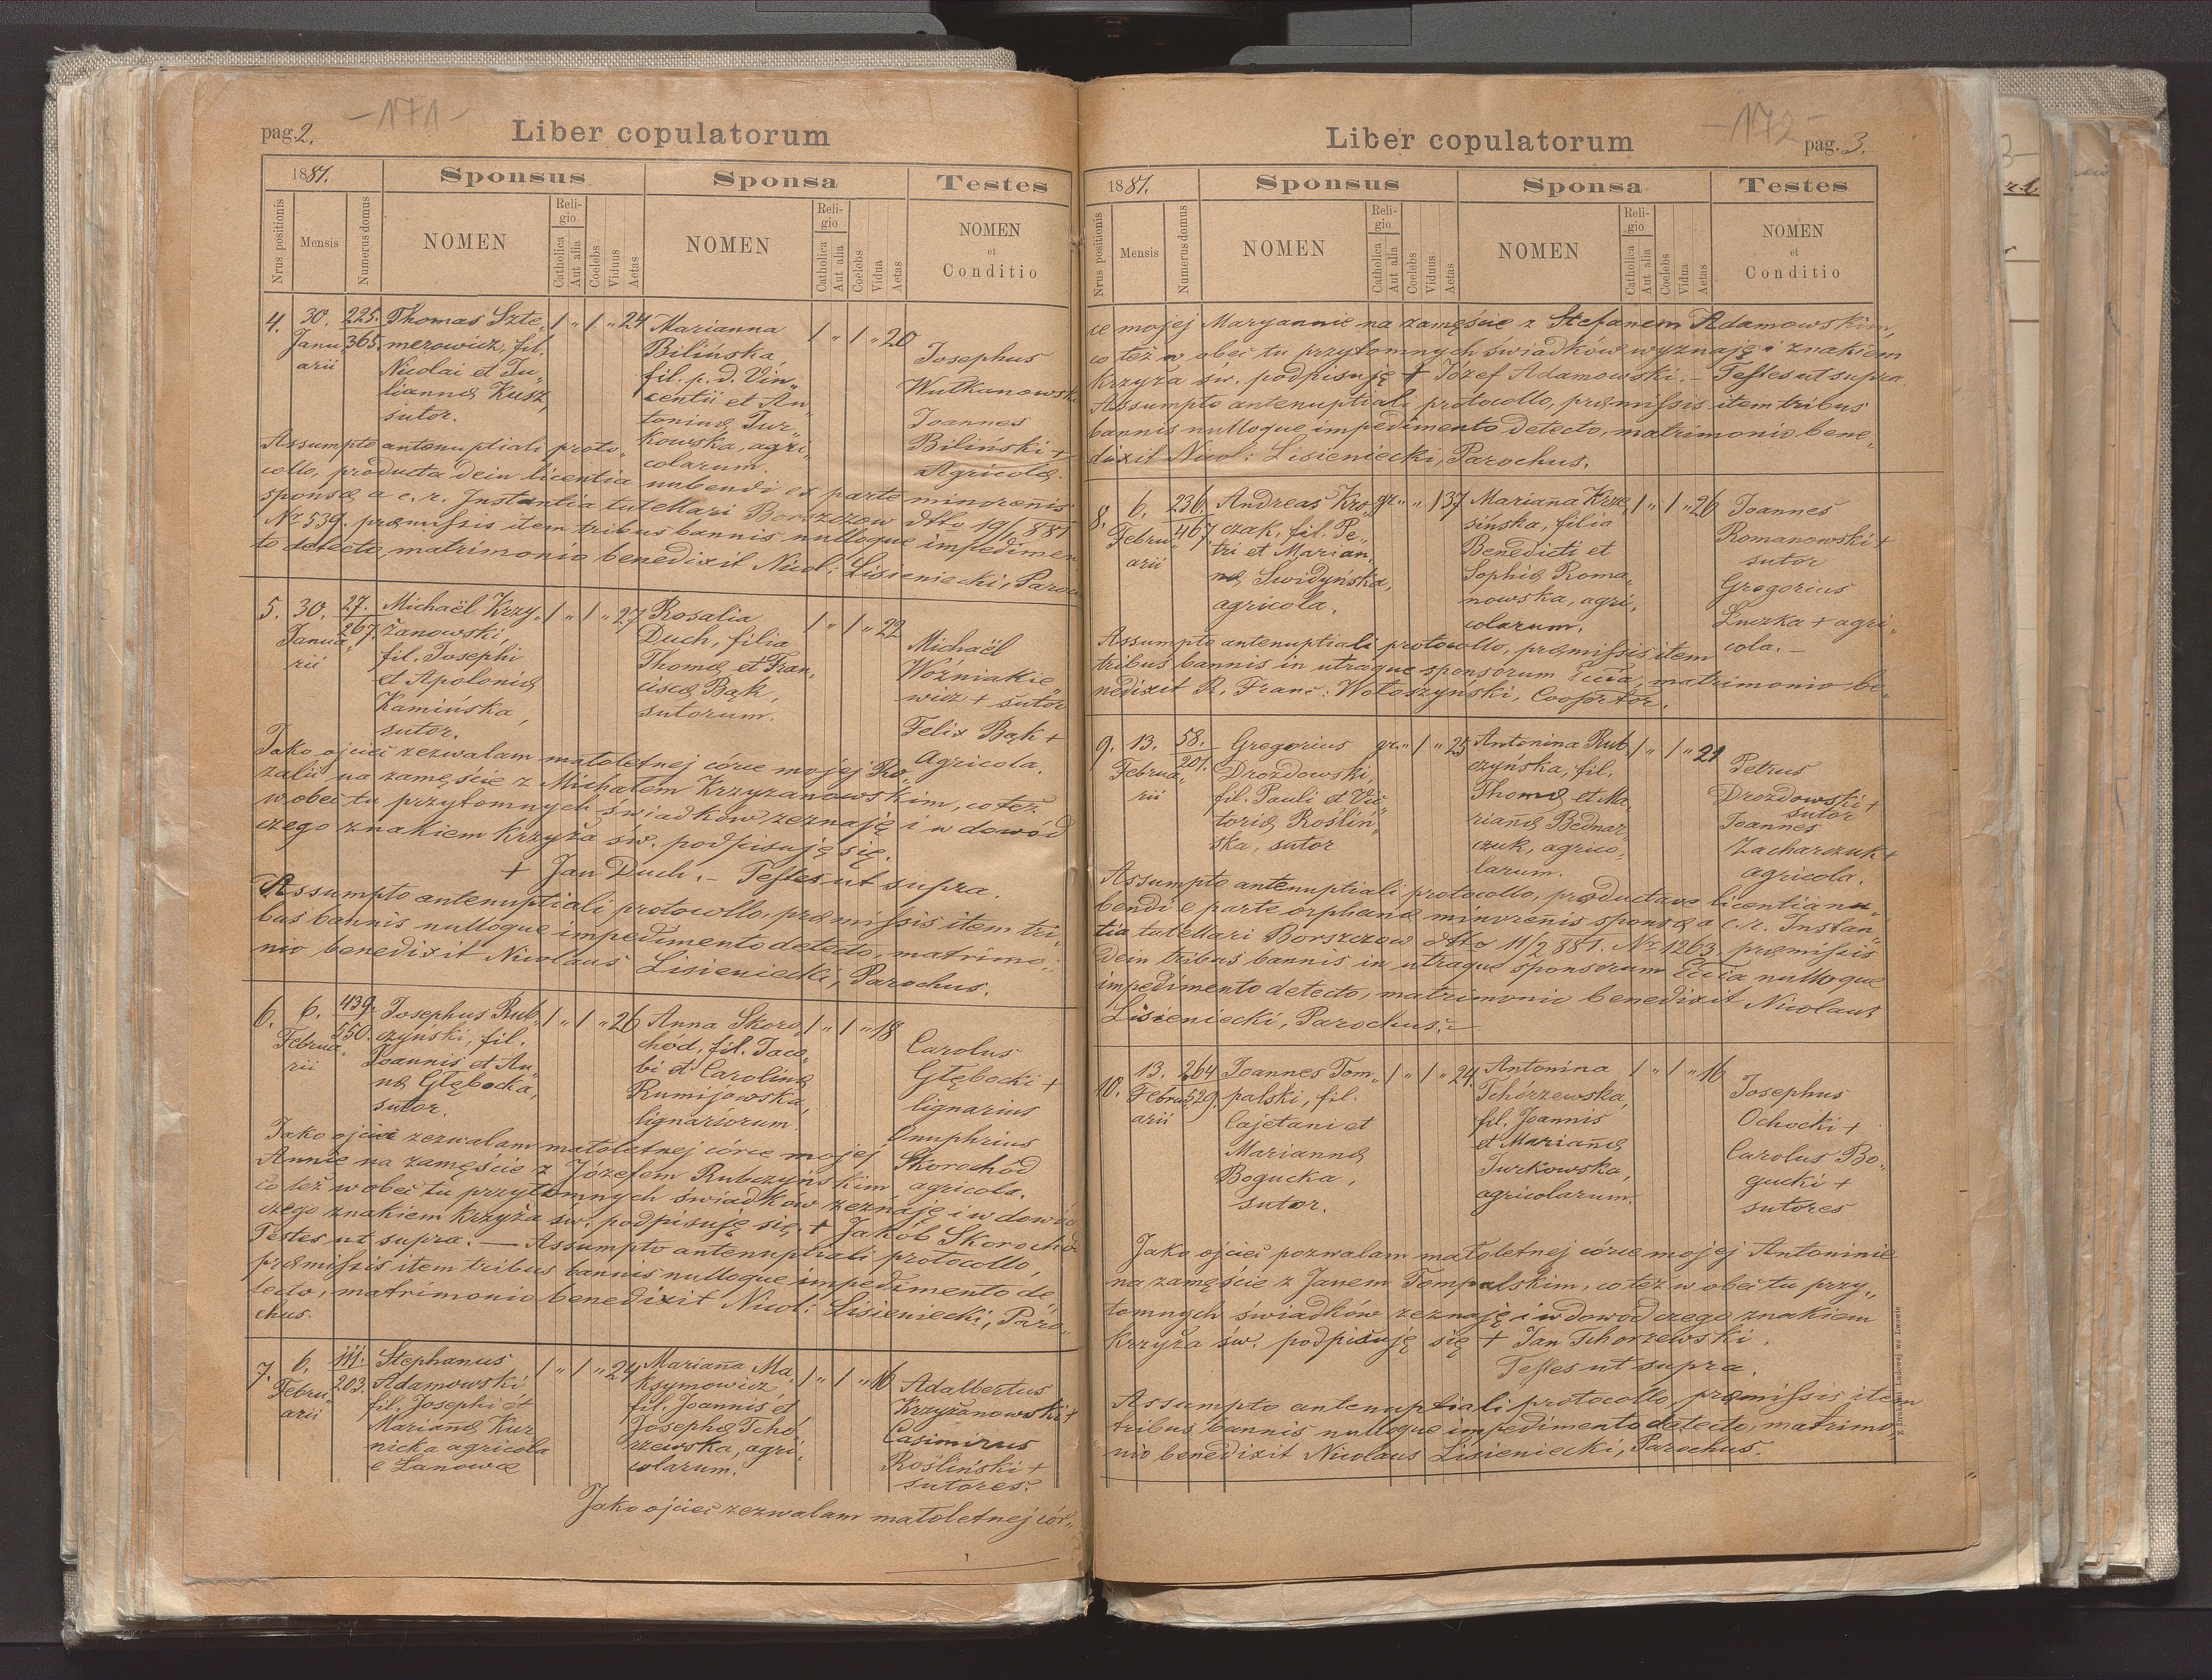 -171-
pag. 2.
Liber copulatorum
1881.
Sponsus
Sponsa
Testes
Nrus positionis
Mensis
Numerus domus
NOMEN
Religio
Catholica
Aut alia
Coelebs
Viduus
Aetas
NOMEN
Religio
Catholica
Aut alia
Coelebs
Vidua
Aetas
NOMEN
et
Conditio
4. 30. Januarii 225. 365.
Thomas Szte„
merowicz, fil.
Nicolai et Ju„
liannæ Kusz,
sutor.
1 „ 1 „ 24
Marianna
Bilińska,
fil. p. d. Vin„
centii et An„
toninæ Tur„
kowska, agri„
colarum.
1 „ 1 „ 20
Josephus
Wutkanowski
Joannes
Biliński +
Agricolæ.
Assumpto antenuptiali proto„
collo, producta dein licentia nubendi ex parte minorenis
sponsæ a c. r. Instantia tutellari Borszczow dtto 19/1 881
No 539. præmissis item tribus bannis nulloque impedimen
to detecto, matrimonio benedixit Nicol: Lisieniecki, Paroc
5. 30. Januarii 27. 267.
Michaël Krzy„
żanowski,
fil. Josephi
et Apoloniæ
Kamińska,
sutor.
1 „ 1 „ 27
Rosalia
Duch, filia
Thomæ et Fran„
ciscæ Bąk,
sutorum.
1 „ 1 „ 22
Michaël
Woźniakie„
wicz + sutor
Felix Bąk +
Agricola.
Jako ojciec zezwalam małoletnej córce mojej Ro„
zalii na zamęście z Michałem Krzyżanowskim, co też
wobec tu przytomnych świadków zeznaję i w dowód
czego znakiem krzyża św. podpisuję się.
+ Jan Duch. – Testes ut supra.
Assumpto antenuptiali protocollo, præmissis item tri„
bus bannis nulloque impedimento detecto, matrimo„
nio benedixit Nicolaus Lisieniecki, Parochus.
6. 6. Februarii 439. 550.
Josephus Rub„
czyński, fil.
Joannis et An„
næ Głębocka,
sutor.
1 „ 1 „ 26
Anna Skoro„
chod, fil. Jaco„
bi et Carolinæ
Rumijowska,
lignariorum.
1 „ 1 „ 18
Carolus
Głębocki +
lignarius
Onuphrius
Skorochód
agricola.
Jako ojciec zezwalam małoletnej córce mojej
Annie na zamęście z Józefem Rubczyńskim
co też wobec tu przytomnych świadków zeznaję i w dowód
czego znakiem krzyża św. podpisuję się. + Jakób Skorochód
Testes ut supra. — Assumpto antenuptiali protocollo,
præmissis item tribus bannis nulloque impedimento de„
tecto, matrimonio benedixit Nicol: Lisieniecki, Paro„
chus.
7. 6. Februarii 111. 203.
Stephanus
Adamowski
fil. Josephi et
Mariañæ Kur„
nicka agricola
e Lanowce
1 „ 1 „ 24
Mariaña Ma„
ksymowicz
fil. Joannis et
Josephæ Tchó„
rzewska, agri„
colarum.
1 „ 1 „ 16
Adalbertus
Krzyżanowski +
Casimirus
Rośliński +
sutores.
Jako ojciec zezwalam małoletnej cór„
-172-
Liber copulatorum
pag. 3.
1881.
Sponsus
Sponsa
Testes
Nrus positionis
Mensis
Numerus domus
NOMEN
Religio
Catholica
Aut alia
Coelebs
Viduus
Aetas
NOMEN
Religio
Catholica
Aut alia
Coelebs
Vidua
Aetas
NOMEN
et
Conditio
ce mojej Maryannie na zamęście z Stefanem Adamowskim,
co też w obec tu przytomnych świadków wyznaję i znakiem
krzyża św. podpisuję + Józef Adamowski. – Testes ut supra.
Assumpto antenuptiali protocollo, præmissis item tribus
bannis nulloque impedimento detecto, matrimonio bene„
dixit Nicol: Lisieniecki, Parochus.
8. 6. Februarii 236. 467.
Andreas Kro„
czak, fil. Pe„
tri et Marian„
næ Swidyńska,
agricola.
gr. „ „ 1 37
Mariaña Krze„
sińska, filia
Benedicti et
Sophiæ Roma„
nowska, agri„
colarum.
1 „ 1 „ 26
Joannes
Romanowski +
sutor
Gregorius
Luczka + agri„
cola. –
Assumpto antenuptiali protocollo, præmissis item
tribus bannis in utraque sponsorum Eccla, matrimonio be„
nedixit R. Franc: Wołoszyński, Cooprtor.
9. 13. Februarii 58. 201.
Gregorius
Drozdowski,
fil. Pauli et Vic„
toriæ Rośliń„
ska, sutor
gr. „ 1 „ 25
Antonina Rub„
czyńska, fil.
Thomæ et Ma„
riañæ Bednar„
czuk, agrico„
larum.
1 „ 1 „ 21
Petrus
Drozdowski +
sutor
Joannes
Zacharczuk +
agricola.
Assumpto antenuptiali protocollo, productave licentia nu„
bendi e parte orphanæ minorenis sponsæ a c. r. Instan„
tia tutellari Borszczow dtto 11/2 881. No 1263 præmissis
dein tribus bannis in utraque sponsorum Eccla nulloque
impedimento detecto, matrimonio benedixit Nicolaus
Lisieniecki, Parochus. –
10. 13. Februarii 264 529.
Joannes Tom„
palski, fil.
Cajetani et
Mariannæ
Bogucka,
sutor.
1 „ 1 „ 24.
Antonina
Tchórzewska,
fil. Joannis
et Mariañæ
Jurkowska,
agricolarum.
1 „ 1 „ 16
Josephus
Ochocki +
Carolus Bo„
gucki +
sutores
Jako ojciec pozwalam małoletnej córce mojej Antoninie
na zamęście z Janem Tempalskim, co też w obec tu przy„
tomnych świadkow zeznaję i w dowod czego znakiem
krzyża św. podpisuję się + Jan Tchorzewski.
Testes ut supra.
Assumpto antenuptiali protocollo, præmissis item
tribus bannis nulloque impedimento detecto, matrimo„
nio benedixit Nicolaus Lisieniecki, Parochus.
Z Drukarni Ludowej we Lwowie